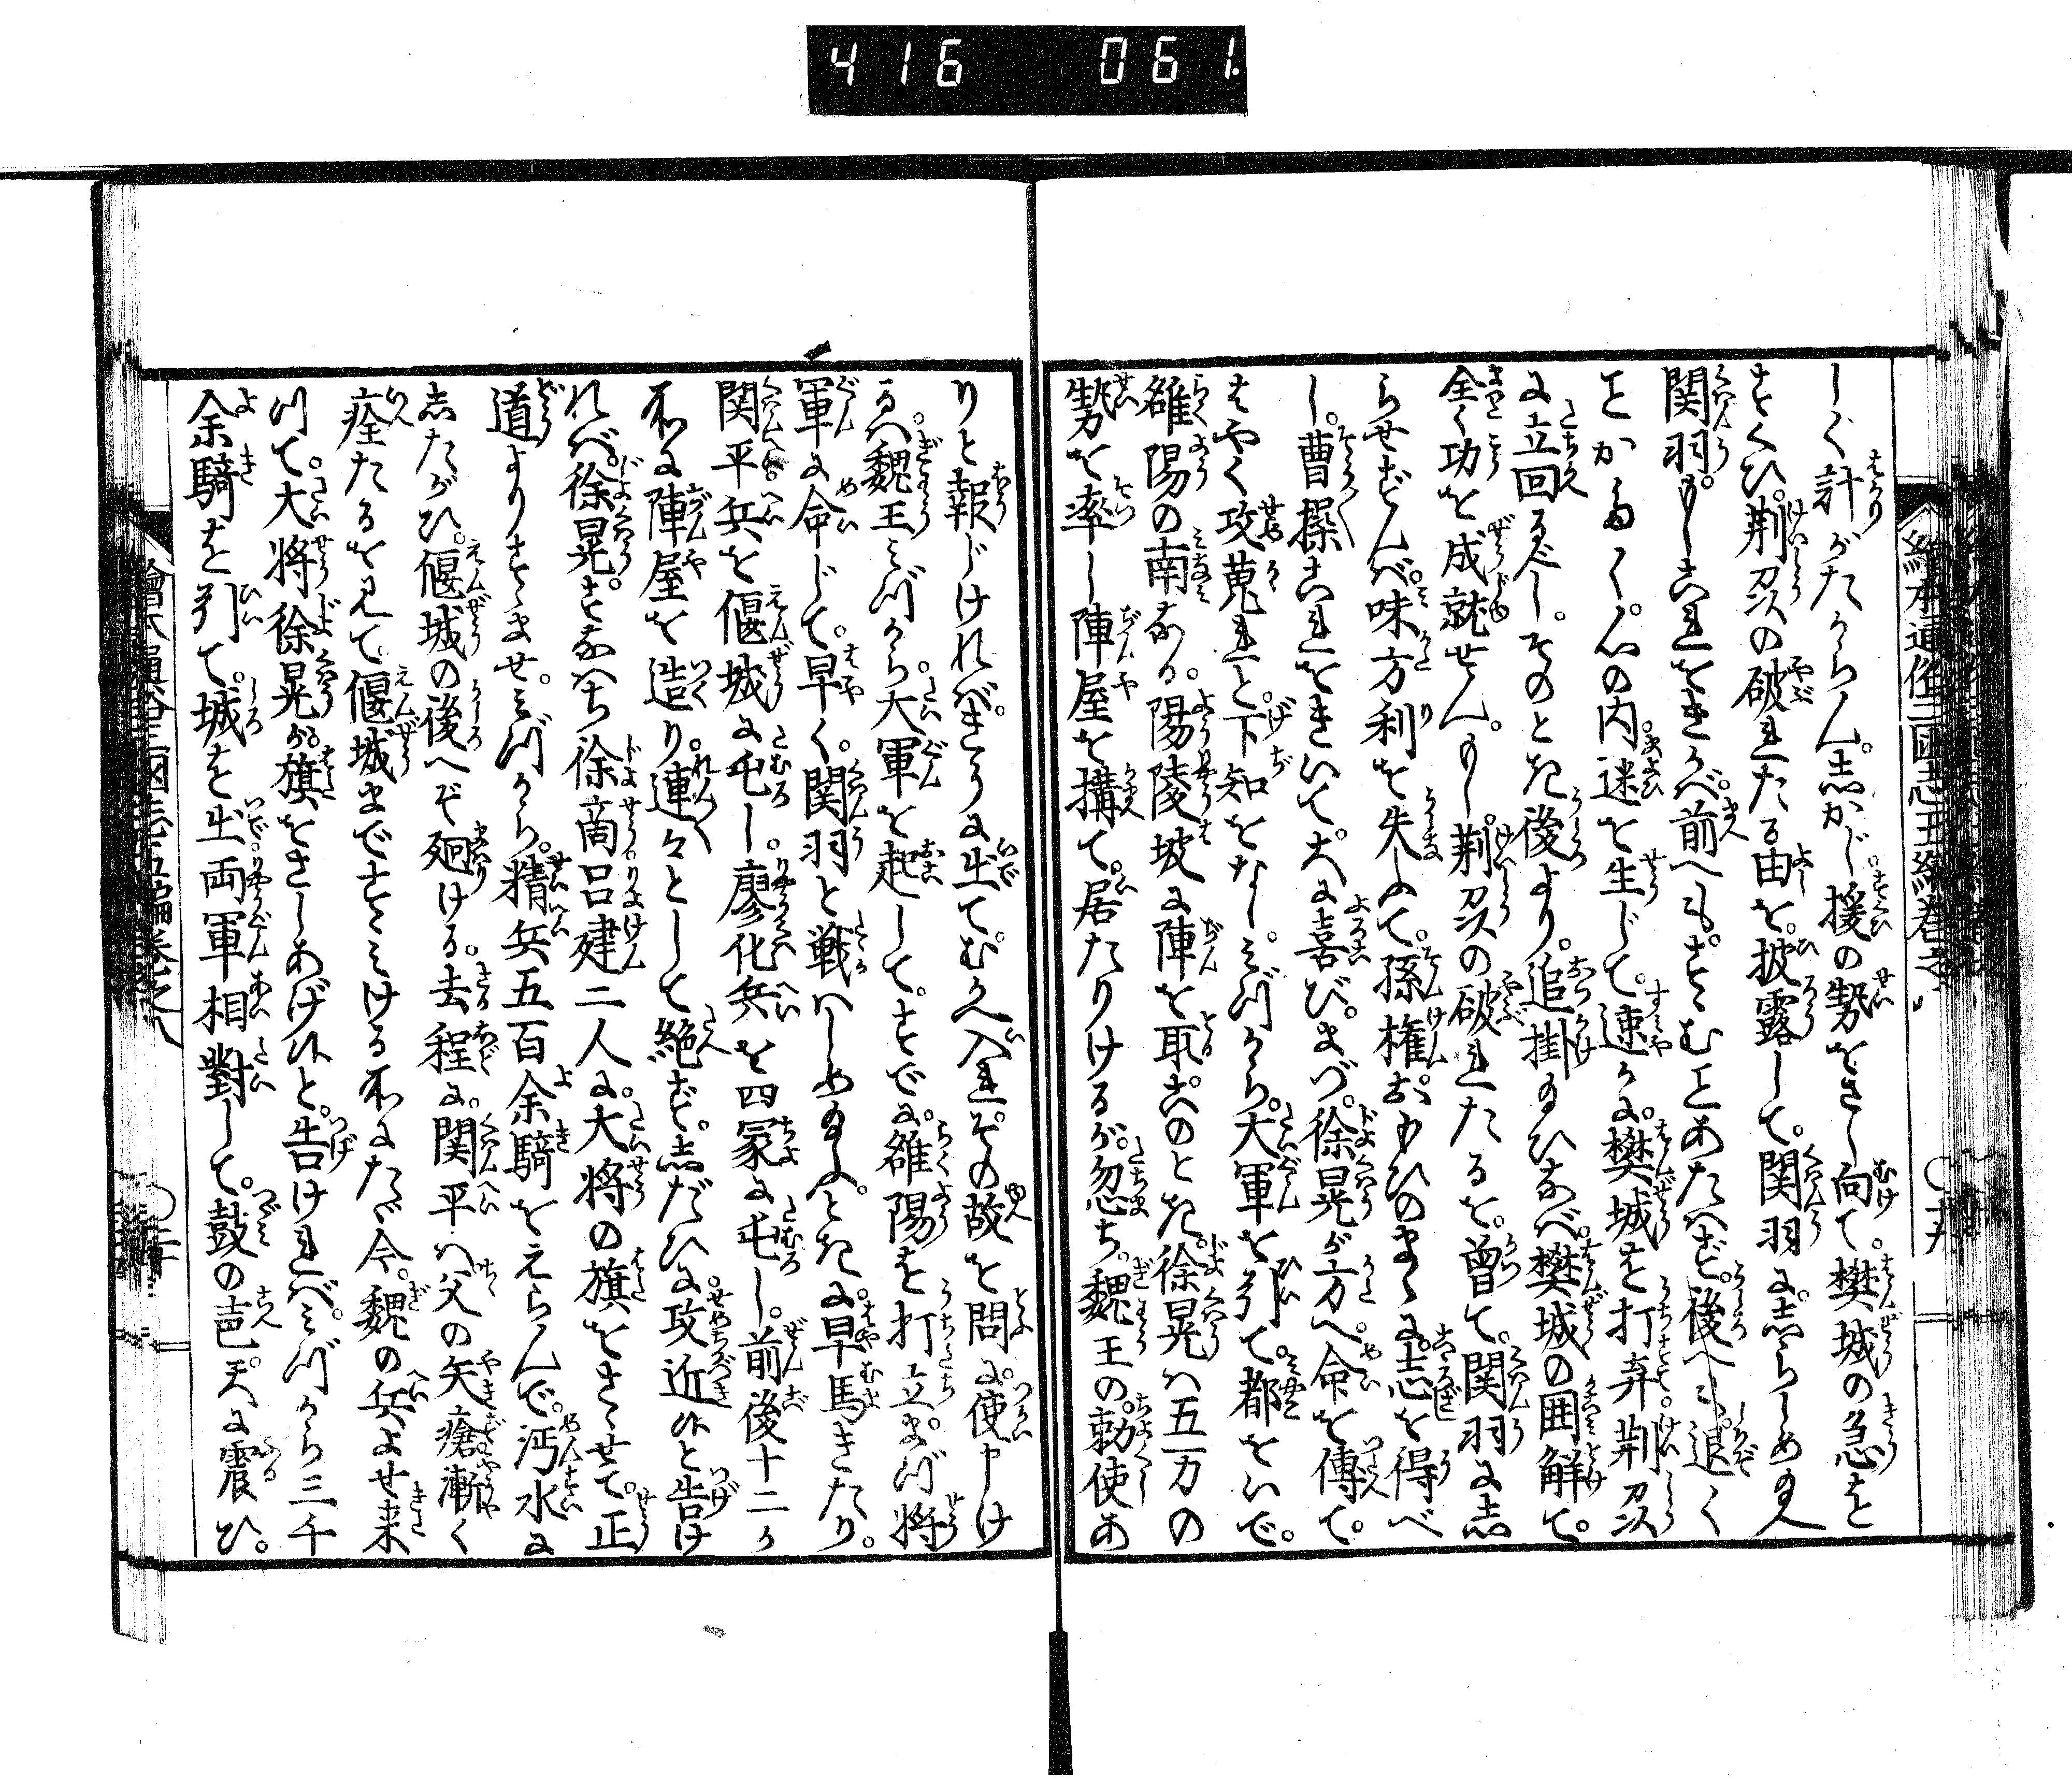 416 061.
しく計がたからん。志かじ援の勢をさし向て。樊城の急を
すくひ。荆刕の破れたる由を。披露して。関羽に志らしめ玉へ
関羽。もしこれをきかべ前へも。すゝむことあたハず。後へも退く
ことかなく。心の内。迷を生じて。速かに。樊城を打弃荆刕
に立回るべし。そのとき後より。追掛玉ひなべ。樊城の囲觧て。
全く功を成就せん。もし。荆刕の破れたるを。曽て。関羽に志
らせずんべ。味方利を失ふて。孫権おもひのまゝに。志を得べ
し。曹操これをきいて。大に喜び。まづ。徐晃が方へ。命を傳て。
はやく攻蒐れと。下知をなし。みづから。大軍を引て。都をいで。
雒陽の南なる。陽陵坡に陣を取。このとき。徐晃ハ五万の
勢を率し陣屋を搆て。居たりけるが。忽ち。魏王の。勅使あ
りと報じけれバ。きうに出て。むかへ入れ。その故を問に。使申け
るハ。魏王みづから。大軍を起して。すでに。雒陽を打立。まづ将
軍に命じて。早く。関羽と戦ハしめ玉ふ。ときに。早馬きたり。
関平兵を偃城に屯し。廖化兵を四冢に屯し。前後十二か
所に陣屋を造り。連々として絶ず。志だひに。攻近候と告け
れべ。徐晃。すなハち徐商呂建二人に。大将の旗をさゝせて。正
道よりすゝませ。みづから。精兵五百余騎をえらんで。沔水に
志たがひ。偃城の後へぞ廻ける。去程に。関平ハ父の矢瘡漸く
痊たるを見て偃城まですゝみける所にたゞ今。魏の兵よせ来
川て。大将徐晃が。旗をさしあげ候と。告けれべ。みづから三千
余騎を引て。城を出両軍相對して。鼓の声。天に震ひ。